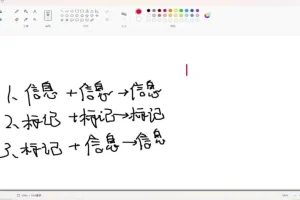 1、信息+信息→信息
2、标记+标记→标记
3、标记+信息→信息